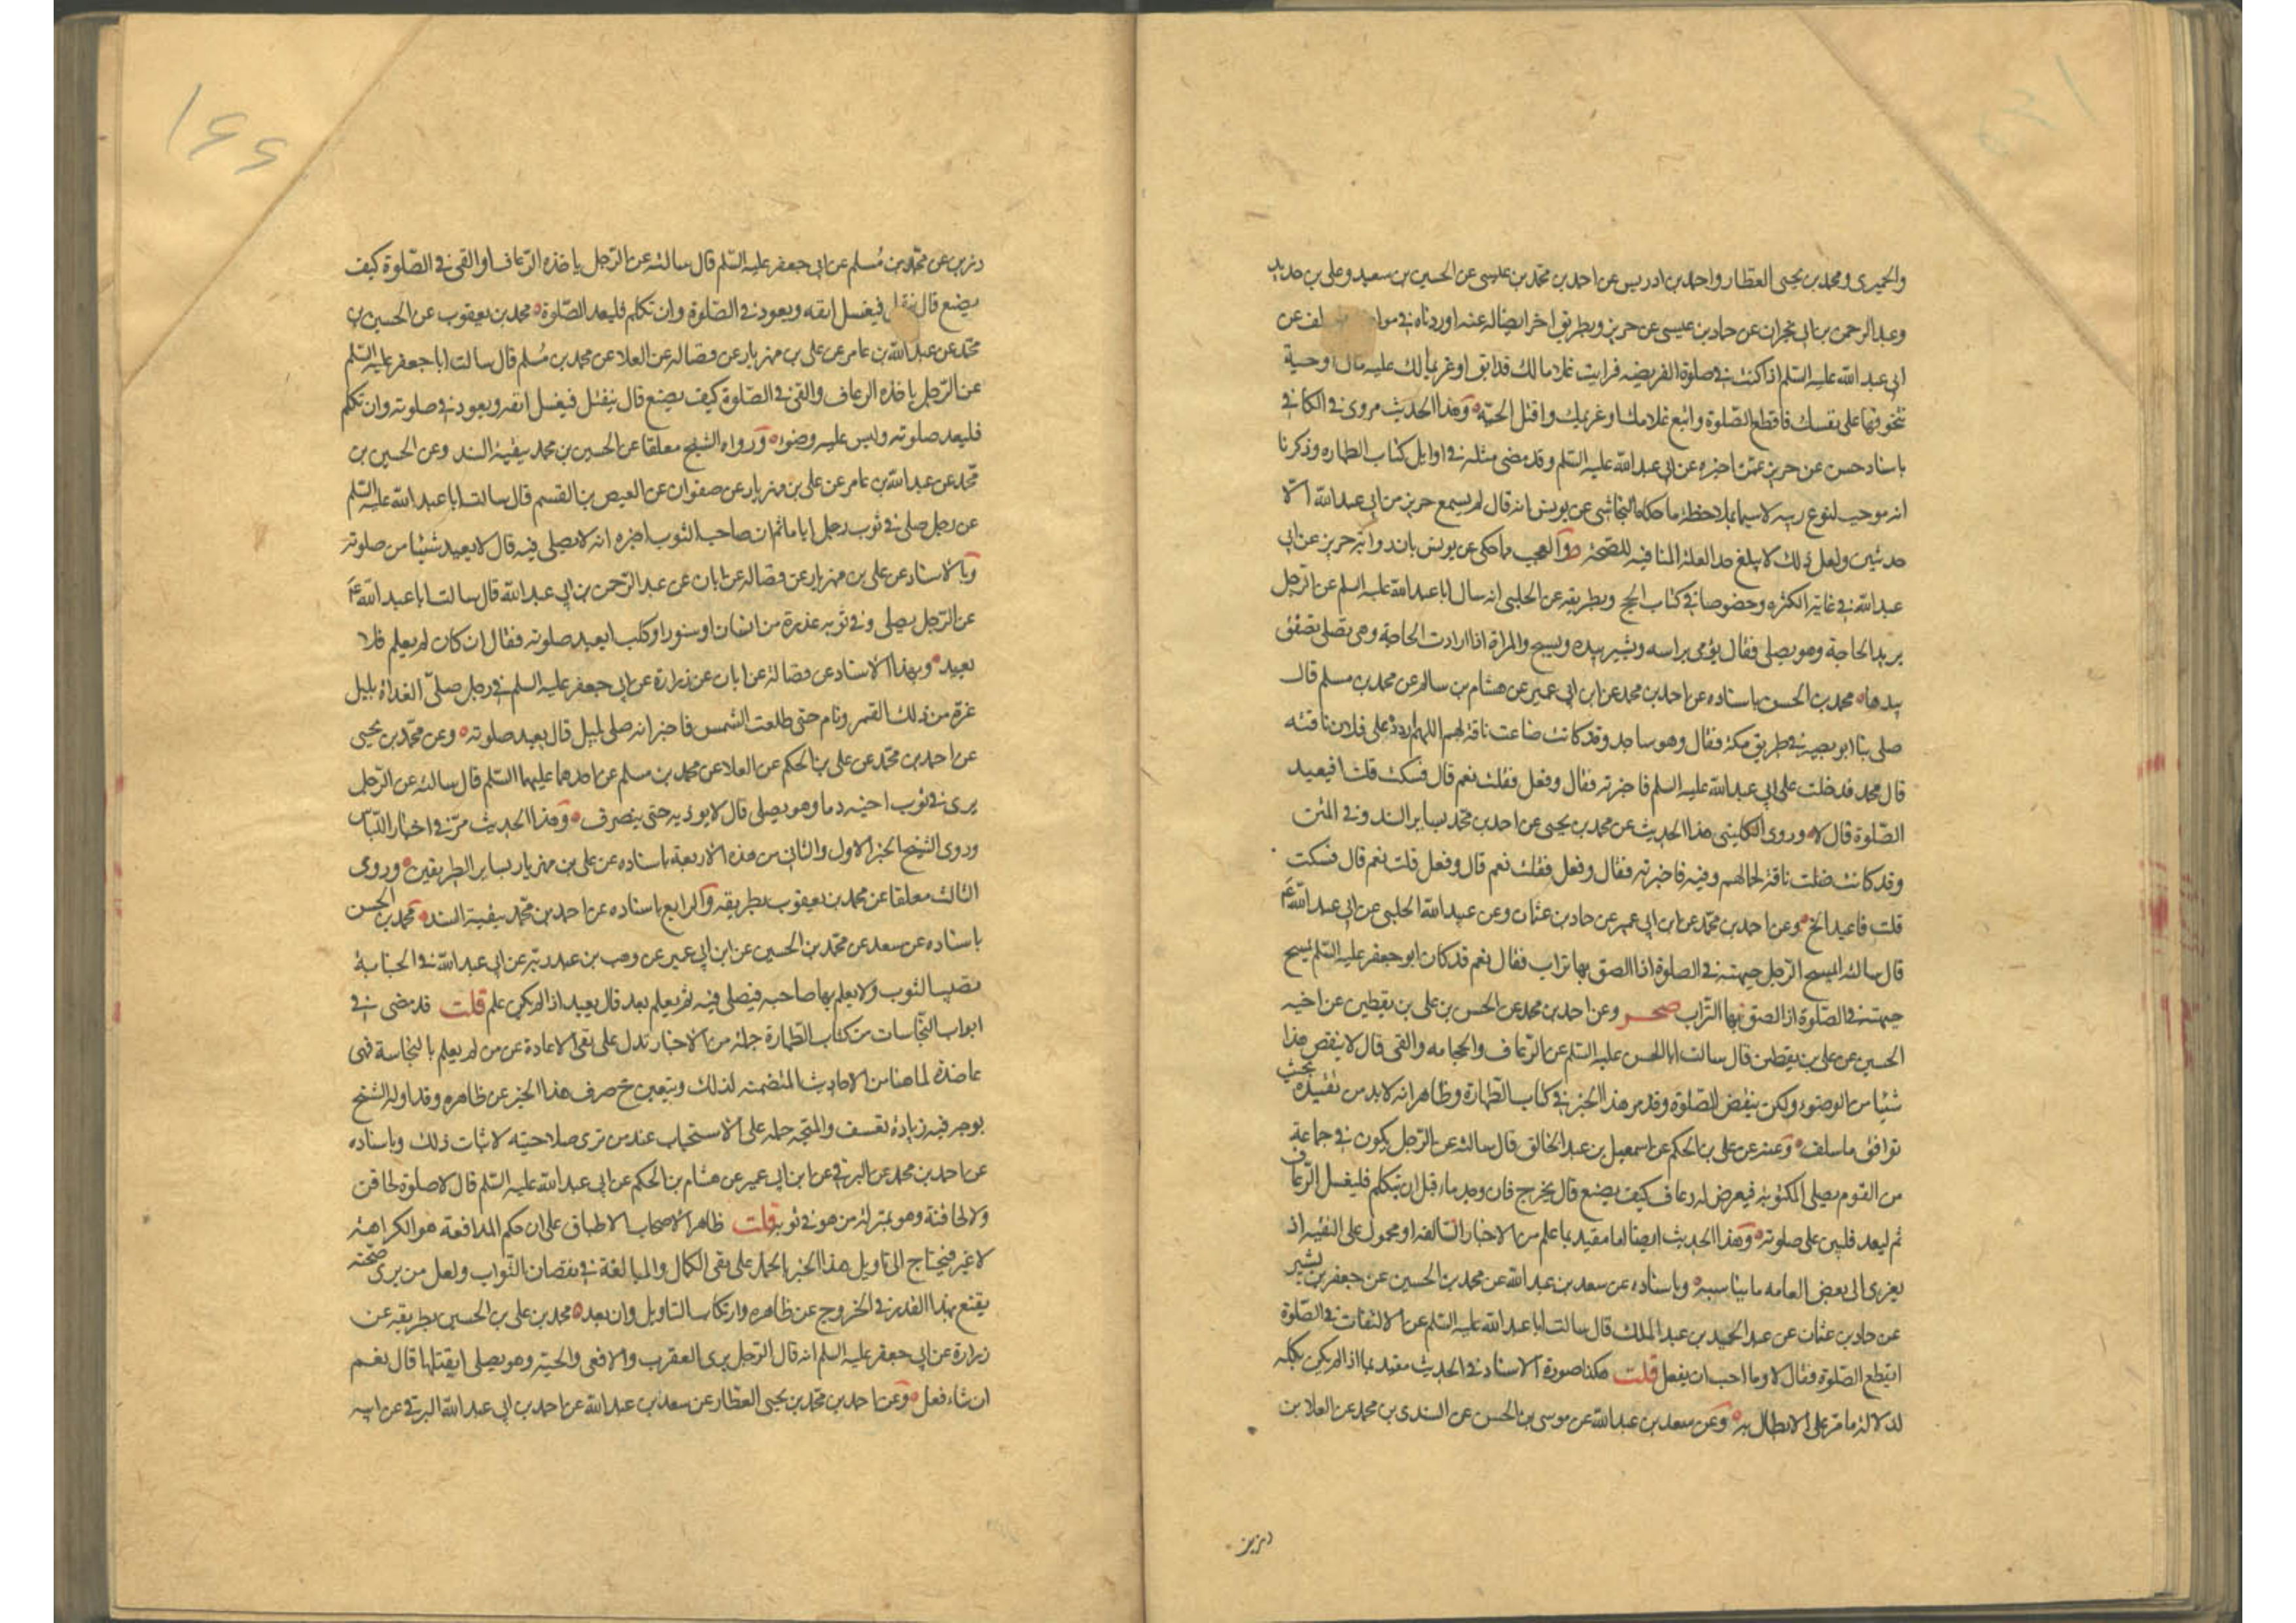 والحميري ومحمد بن يحيى العطار واحمد بن ادريس عن احمد بن محمد بن عيسى عن الحسين بن سعيد وعلي بن حديد
وعبد الرحمن بن ابي نجران عن حماد بن عيسى عن حريز وبطريق اخر ايضا له عنه اوردناه في عن
ابي عبد الله عليه السلم اذا كنت في صلوة الفريضه فرايت غلاما لك قد ابق او غريما لك عليه مال او حية
تتخوفها على نفسك فاقطع الصلوة واتبع غلامك او غريمك واقتل الحيّة وهذا الحديث مروي في الكافي
باسناد حسن عن حريز عمّن اخبره عن ابي عبد الله عليه السلم وقد مضى مثله في اوايل كتاب الطهاره وذكرنا
انه موجب لنوع ريبه لا سيما بملاحظة ما حكاه النجاشي عن يونس انه قال لم يسمع حريز من ابي عبد الله الّا
حديثين ولعل ذلك لا يبلغ حد العلة المنافيه للصحة والعجب ما حكى عن يونس بان رواية حريز عن ابي
عبد الله في غاية الكثره وخصوصا في كتاب الحج وبطريقه عن الحلبي انه سال ابا عبد الله عليه السلم عن الرجل
يريد الحاجة وهو يصلي فقال يومي براسه ويشير بيده ويسبح والمراة اذا ارادت الحاجة وهي تصلي تصفق
بيدها محمد بن الحسن باسناده عن احمد بن محمد عن ابن ابي عمير عن هشام بن سالم عن محمد بن مسلم قال
صلى بنا ابو بصير في طريق مكة فقال وهو ساجد وقد كانت ضاعت ناقة لهم اللهم اردد على فلان ناقته
قال محمد فدخلت على ابي عبد الله عليه السلم فاخبرته فقال وفعل فقلت نعم قال فسكت قلت افيعيد
الصّلوة قال لا وروى الكليني هذا الحديث عن محمد بن يحيى عن احمد بن محمد بساير السند وفي المتن
وقد كانت ضلت ناقة لجمالهم وفيه فاخبرته فقال وفعل فقلت نعم قال وفعل قلت نعم قال فسكت
قلت فاعيد الخ وعن احمد بن محمد عن ابن ابي عمير عن حماد بن عثمان وعن عبيد الله الحلبي عن ابي عبد الله ع
قال سالته ايمسح الرجل جبهته في الصلوة اذا الصق بها تراب فقال نعم قد كان ابو جعفر عليه السلم يمسح
جبهته في الصّلوة اذا الصق بها التراب صحر وعن احمد بن محمد عن الحسن بن علي بن يقطين عن اخيه
الحسين عن علي بن يقطين قال سالت ابا الحسن عليه السّلم عن الرّعاف والحجامه والقي قال لا ينقض هذا
شيئا من الوضوء ولكن ينقض الصّلوة وقد مر هذا الخبر في كتاب الطهارة وظاهر انه لا بد من تقييده بحيث
توافق ما سلف وعنه عن علي بن الحكم عن اسمعيل بن عبد الخالق قال سالته عن الرّجل يكون في جماعة
من القوم يصلي المكتوبة فيعرض له رعاف كيف يصنع قال يخرج فان وجد ماء قبل ان يتكلم فليغسل الرّعاف
ثم ليعد فليبن على صلوته وهذا الحديث ايضا اما مقيد بما علم من الاخبار السّالفه او محمول على التقيه اذ
يعزى الى بعض العامه ما يناسبه وباسناده عن سعد بن عبد الله عن محمد بن الحسين عن جعفر بن بشير
عن حماد بن عثمان عن عبد الحميد بن عبد الملك قال سالت ابا عبد الله عليه السّلم عن الالتفات في الصّلوة
ايقطع الصّلوة فقال لا وما احب ان يفعل قلت هكذا صورة الاسناد في الحديث مقيد بما اذا لم يكن بكله
لدلالة ما مر على الابطال به وعن سعد بن عبد الله عن موسى بن الحسن عن السندي بن محمد عن العلا بن
رزين
١٤٤
رزين عن محمد بن مسلم عن ابي جعفر عليه السّلم قال سالته عن الرّجل ياخذه الرّعاف او القي في الصّلوة كيف
يصنع قال ينفتل فيغسل انفه ويعود في الصّلوة وان تكلم فليعد الصّلوة محمد بن يعقوب عن الحسين بن
محمد عن عبد الله بن عامر عن علي بن مهزيار عن فضاله عن العلا عن محمد بن مسلم قال سالت ابا جعفر عليه السّلم
عن الرّجل ياخذه الرعاف والقي في الصّلوة كيف يصنع قال ينفتل فيغسل انفه ويعود في صلوته وان تكلم
فليعد صلوته وليس عليه وضوء ورواه الشيخ معلقا عن الحسين بن محمد ببقية السند وعن الحسين بن
محمد عن عبد الله بن عامر عن علي بن مهزيار عن صفوان عن العيص بن القسم قال سالت ابا عبد الله عليه السّلم
عن رجل صلى في ثوب رجل اياما ثم ان صاحب الثوب اخبره انه لا يصلي فيه قال لا يعيد شيئا من صلوته
وبالاسناد عن علي بن مهزيار عن فضاله عن ابان عن عبد الرّحمن بن ابي عبد الله قال سالت ابا عبد الله ع
عن الرّجل يصلي وفي ثوبه عذرة من انسان او سنور او كلب ايعيد صلوته فقال ان كان لم يعلم فلا
يعيد وبهذا الاسناد عن فضالة عن ابان عن زرارة عن ابي جعفر عليه السلم في رجل صلّى الغداة بليل
غرّه من ذلك القمر ونام حتى طلعت الشمس فاخبر انه صلى بليل قال يعيد صلوته وعن محمد بن يحيى
عن احمد بن محمد عن علي بن الحكم عن العلا عن محمد بن مسلم عن احدهما عليهما السّلم قال سالته عن الرّجل
يرى في ثوب اخيه دما وهو يصلي قال لا يوذيه حتى ينصرف وهذا الحديث مرّ في اخبار اللّباس
وروى الشيخ الخبر الاول والثاني من هذه الاربعة باسناده عن علي بن مهزيار بساير الطريقين وروى
الثالث معلقا عن محمد بن يعقوب بطريقه والرابع باسناده عن احمد بن محمد ببقية السند محمد بن الحسن
باسناده عن سعد عن محمد بن الحسين عن ابن ابي عمير عن وهب بن عبد ربّه عن ابي عبد الله في الجنابة
تصيب الثوب ولا يعلم بها صاحبه فيصلي فيه ثم يعلم بعد قال يعيد اذا لم يكن علم قلت قد مضى في
ابواب النّجاسات من كتاب الطّهارة جملة من الاخبار تدل على نفي الاعادة عن من لم يعلم بالنجاسة فهي
عاضدة لما هنا من الاحاديث المتضمنه لذلك ويتعين ح صرف هذا الخبر عن ظاهره وقد اوله الشيخ
بوجه فيه زيادة تعسف والمتجه حمله على الاستحباب عند من ترى صلاحيته لاثبات ذلك وباسناده
عن احمد بن محمد عن البرقي عن ابن ابي عمير عن هشام بن الحكم عن ابي عبد الله عليه السّلم قال لا صلوة لحاقن
ولا لحاقنة وهو بمنزلة من هو في ثوبه قلت ظاهر الاصحاب الاطباق على ان حكم المدافعة هو الكراهة
لا غير فيحتاج الى تاويل هذا الخبر بالحمل على نفي الكمال والمبالغة في نقصان الثّواب ولعل من يرى صحّته
يقنع بهذا القدر في الخروج عن ظاهره وارتكاب التاويل وان بعد محمد بن علي بن الحسين بطريقه عن
زرارة عن ابي جعفر عليه السلم انه قال الرّجل يرى العقرب والافعى والحيّة وهو يصلي ايقتلها قال نعم
ان شاء فعل وعن احمد بن محمد بن يحيى العطّار عن سعد بن عبد الله عن احمد بن ابي عبد الله البرقي عن ابيه